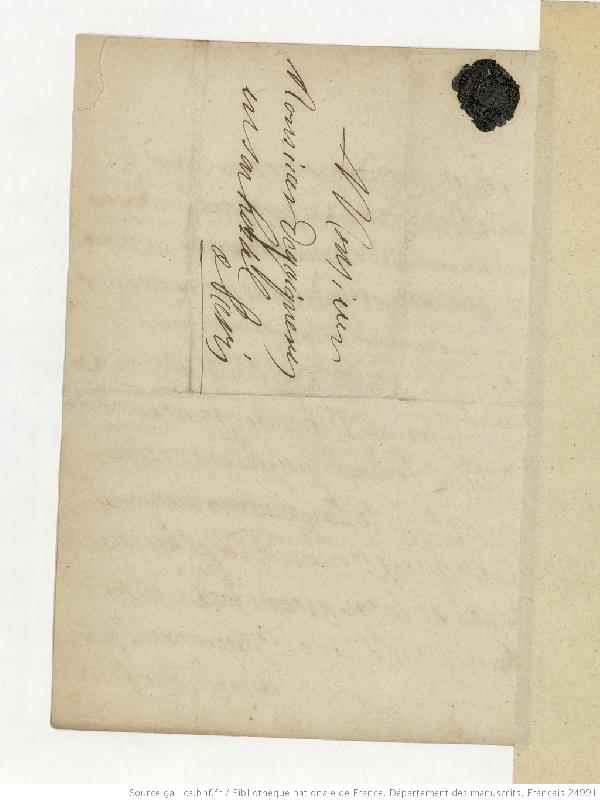 A Monsieur
Monsieur
en son hotel
a Paris
Source gallica.bnf.fr / Bibliothèque nationale de France. Département des manuscrits. Français 24991